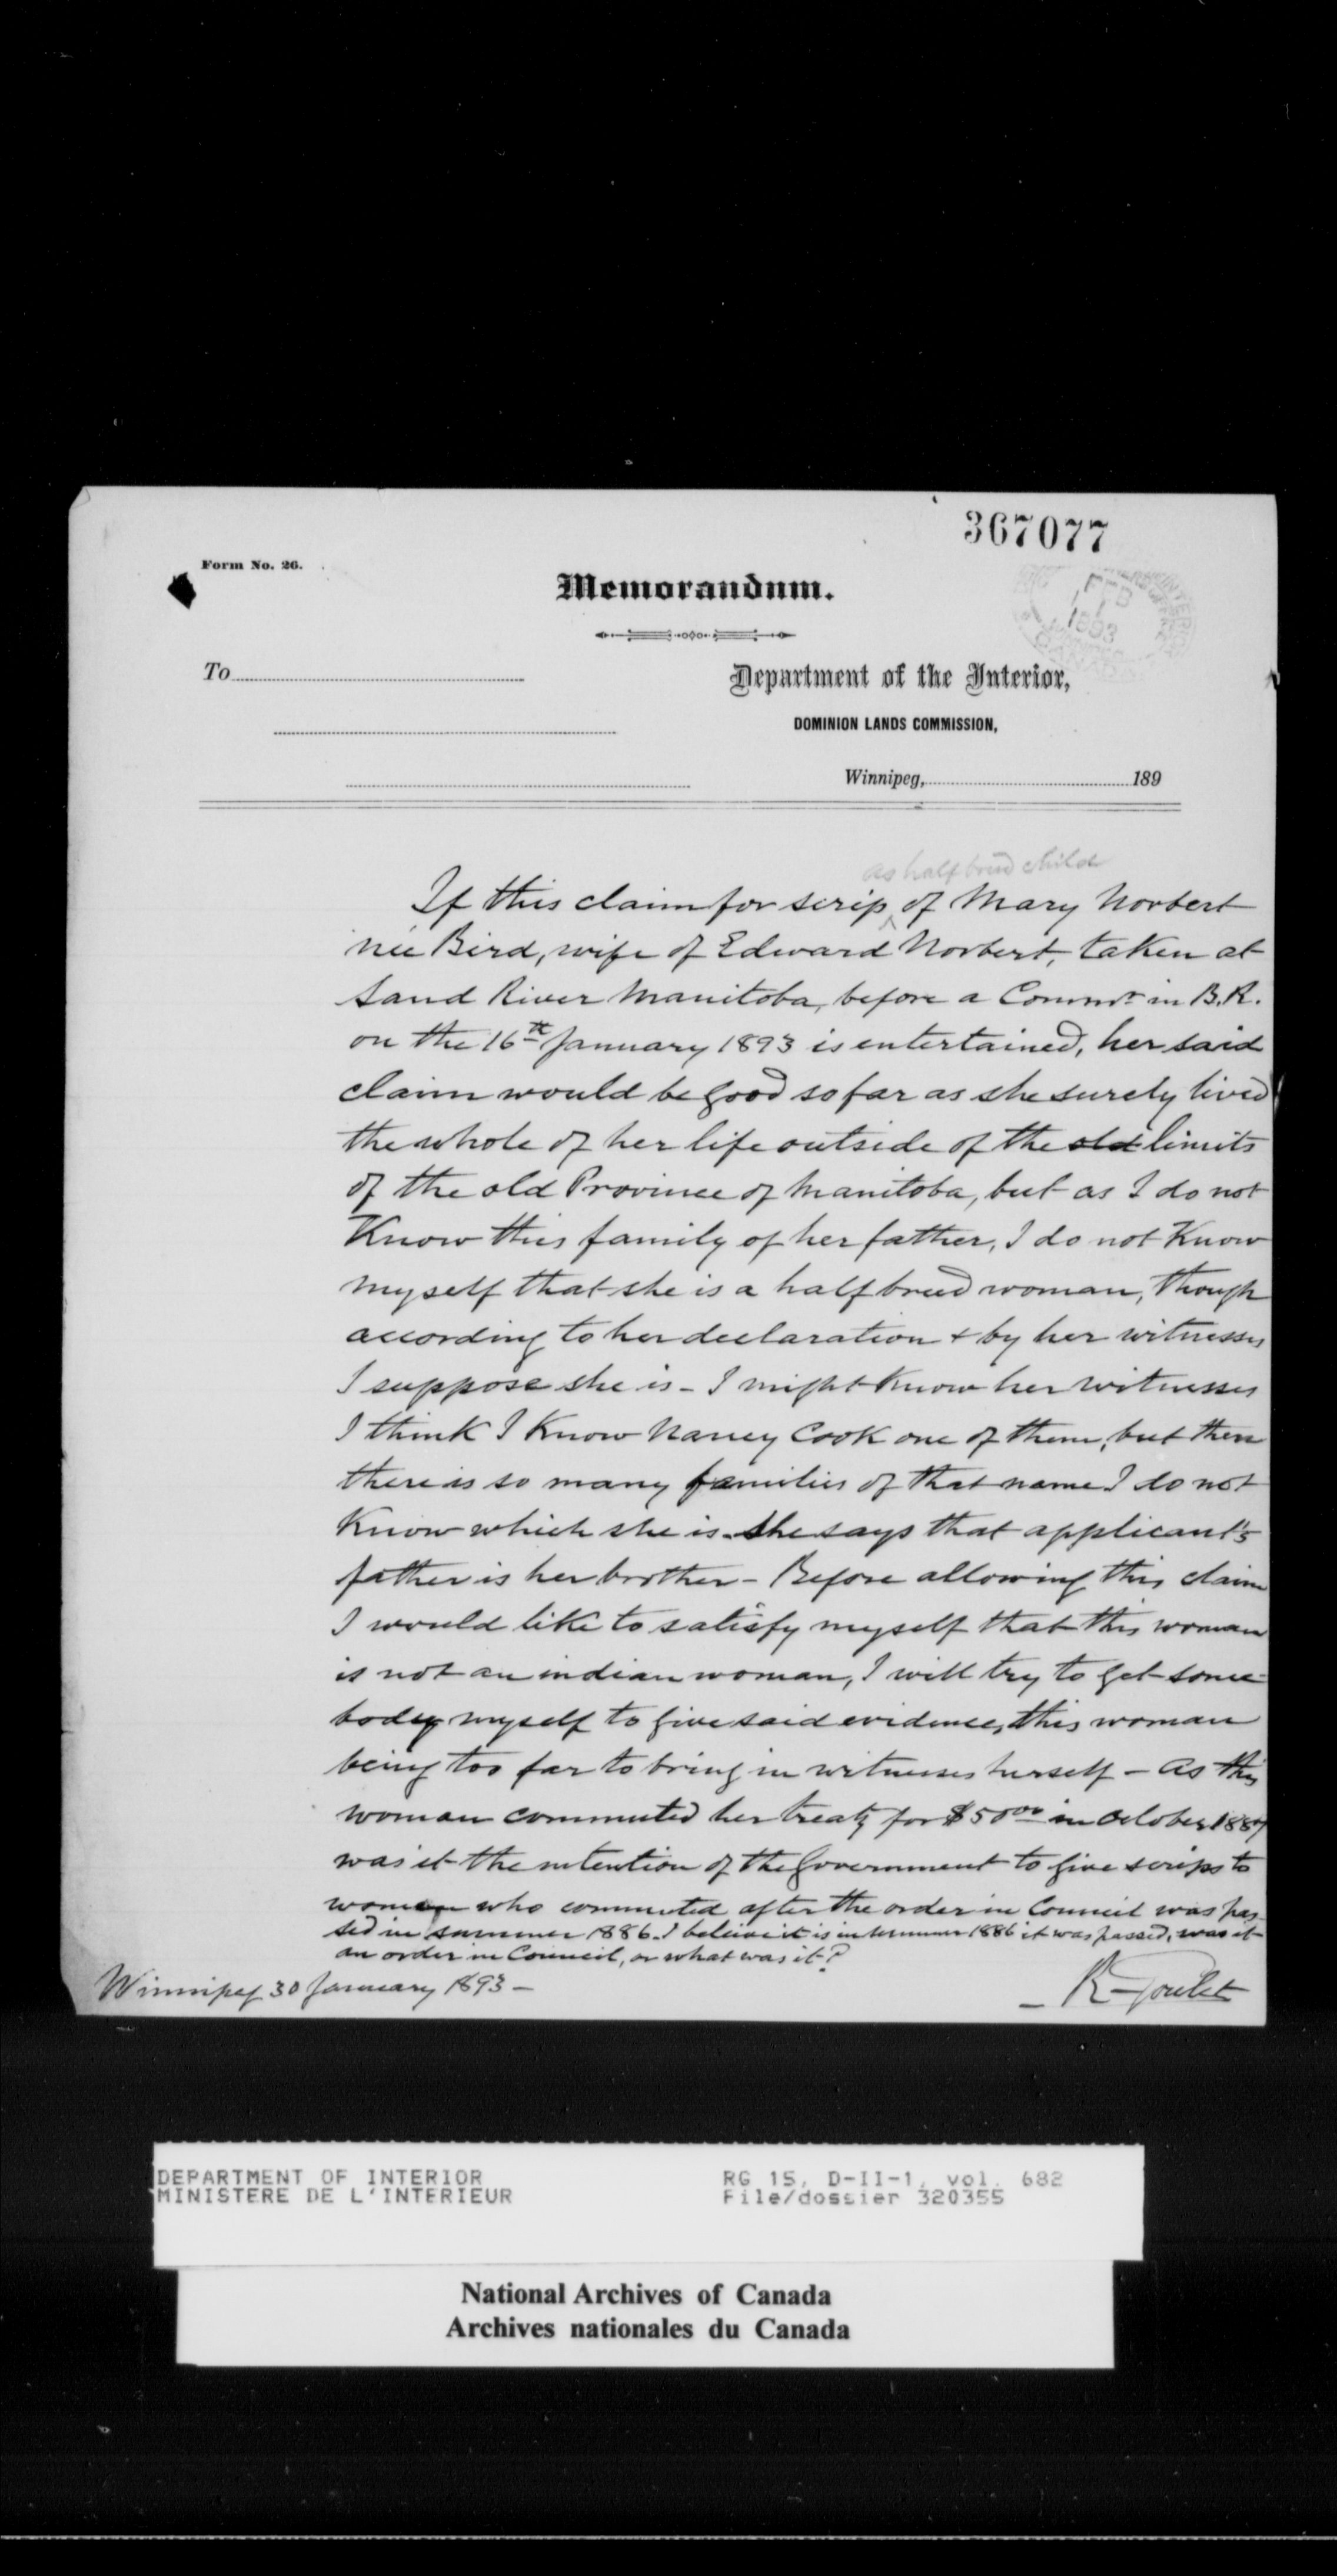 367077
Form No. 26.
Memorandum.
FEB
1
1893
To
Department of the Interior,
DOMINION LANDS COMMISSION,
Winnipeg, 189
as half breed child
If this claim for scrip of Mary Norbert
née Bird, wife of Edward Norbert, taken at
Sand River Manitoba, before a Commr in B.R.
on the 16th January 1893 is entertained, her said
claim would be good so far as she surely lived
the whole of her life outside of the old limits
of the old Province of Manitoba, but as I do not
Know this family of her father, I do not Know
myself that she is a half breed woman, though
according to her declaration + by her witnesses
I suppose she is - I might know her witnesses
I think I Know Nancy Cook one of them, but then
there is so many families of that name I do not
Know which she is. She says that applicant's
father is her brother - Before allowing this claim
I would like to satisfy myself that this woman
is not an indian woman, I will try to get some
body myself to give said evidence, this woman
being too far to bring in witnesses herself - As this
woman commuted her treaty for $50 00 in October 1887
was it the intention of the Government to give scrips to
women who commuted after the order in Council was pas
sed in summer 1886. I beleive it is in summer 1886 it was passed, was it
an order in Council, or what was it?
Winnipeg 30 January 1893 -
- R Goulet
DEPARTMENT OF INTERIOR
MINISTERE DE L'INTERIEUR
RG 15, D-II-1, vol. 682
File/dossier 320355
National Archives of Canada
Archives nationales du Canada